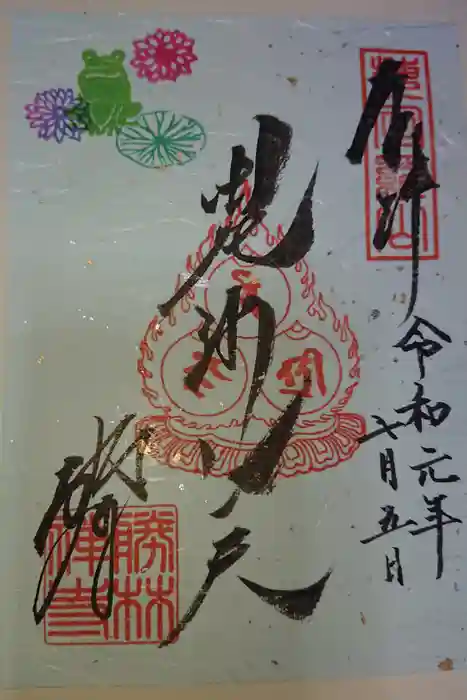 奉拝
令和元年
七月五日
毘沙門天
勝林寺
勝林
禅寺